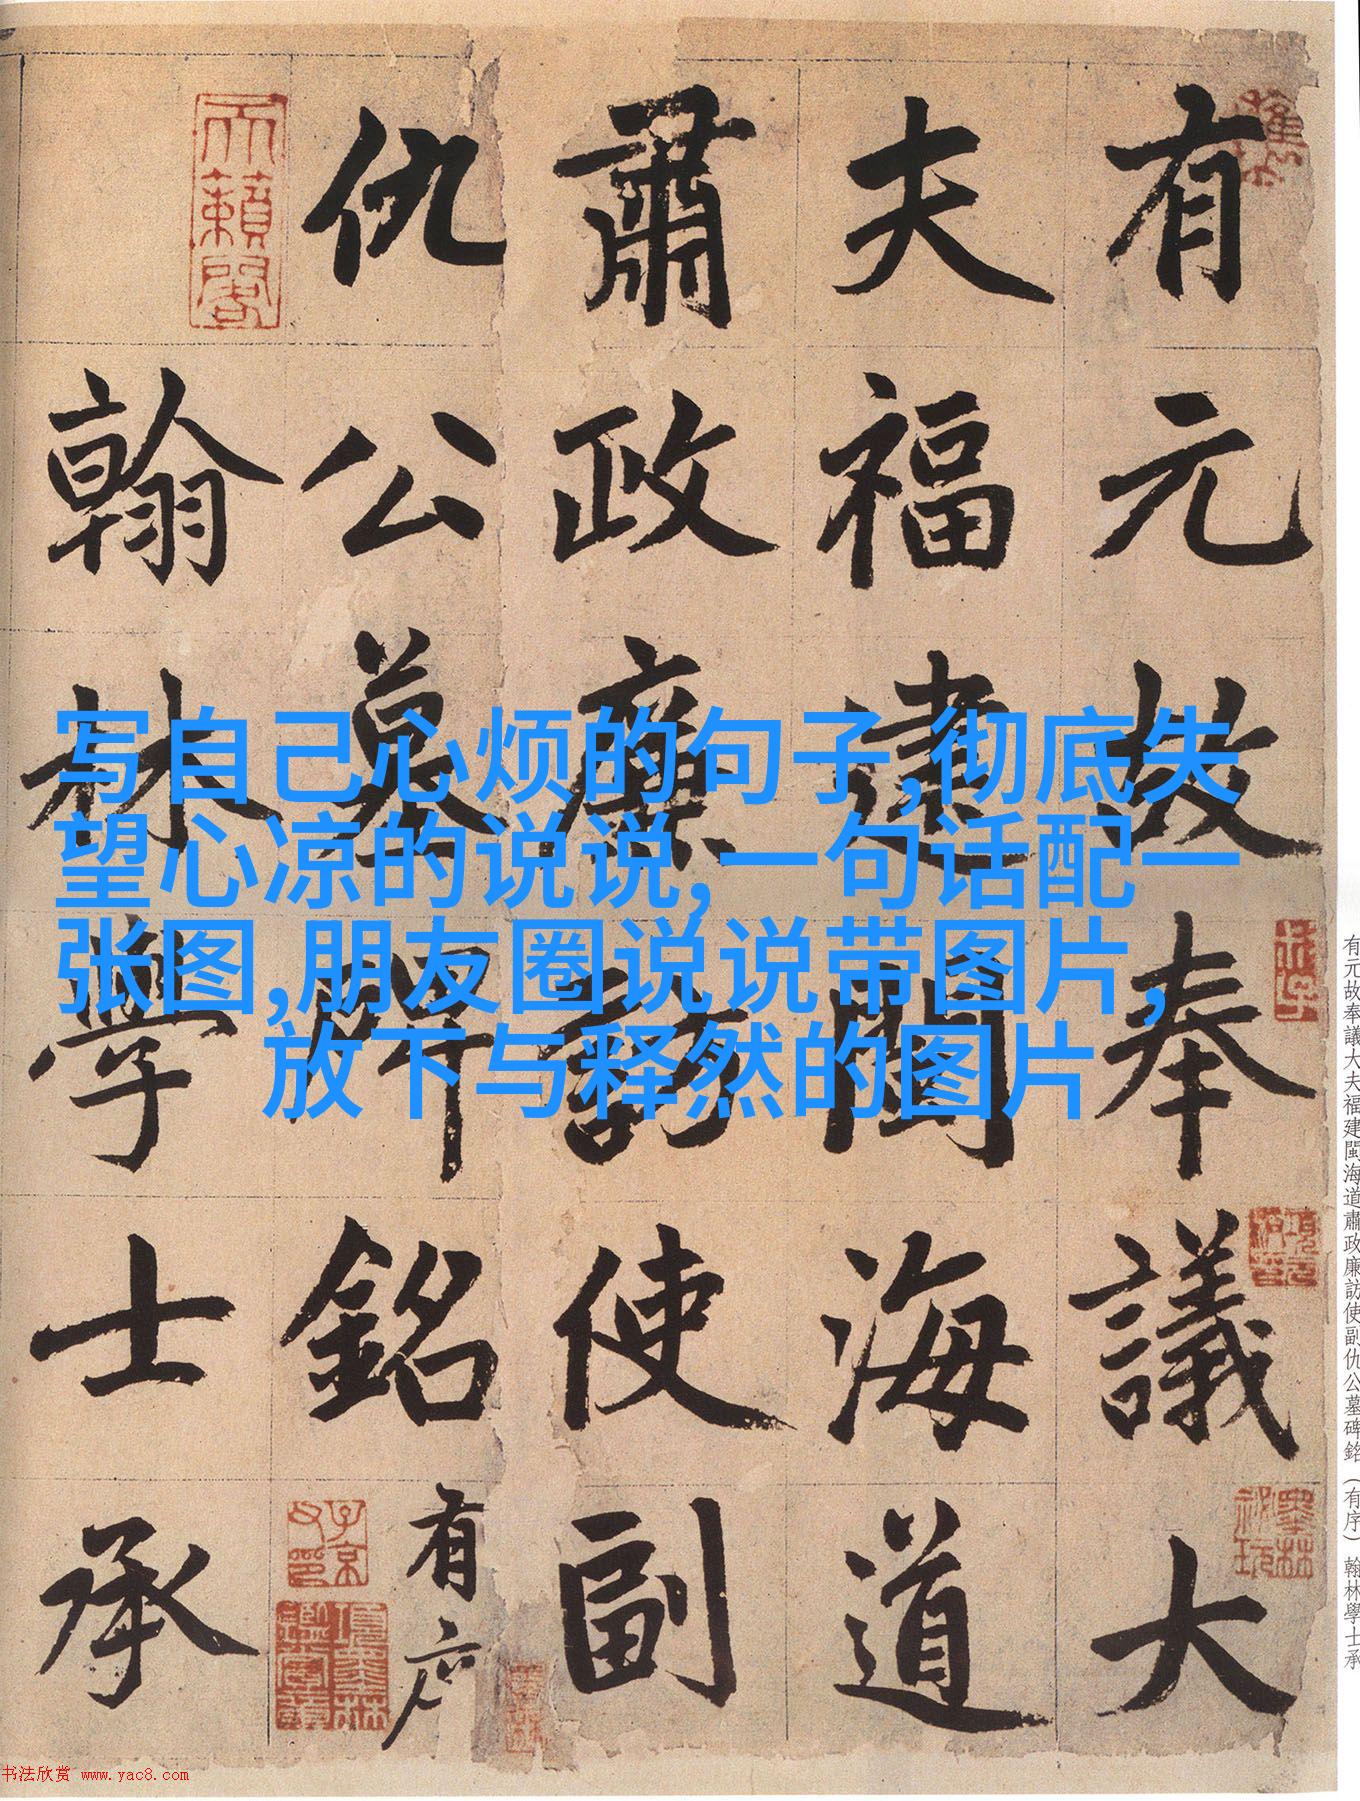 有元故奉議大
夫福建閩海道
肅政廉訪使副
仇公墓碑銘有序
翰林學士承
天籟閣
子京父印
項墨林鑑賞章
項元汴印
墨林秘玩
写自己心烦的句子,彻底失
望心凉的说说,一句话配一
张图,朋友圈说说带图片,
放下与释然的图片
有元故奉議大夫福建閩海道肅政廉訪使副仇公墓碑銘（有序）翰林學士承
书法欣赏 www.yac8.com